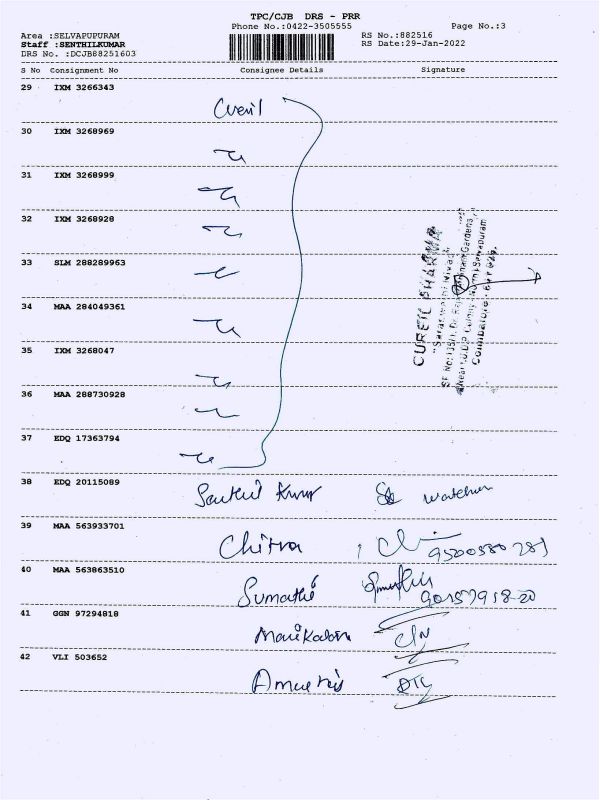 TPC/CJB DRS - PRR
Phone No.:0422-3505555
Page No.:3
Area :SELVAPUPURAM
RS No.:882516
Staff :SENTHILKUMAR
RS Date:29-Jan-2022
DRS No. :DCJB88251603
S No Consignment No Consignee Details Signature
29 IXM 3266343
Cureil
30 IXM 3268969
31 IXM 3268999
32 IXM 3268928
33 SLM 288289963
34 MAA 284049361
35 IXM 3268047
36 MAA 288730928
37 EDQ 17363794
CUREIL PHARMA
Coimbatore
38 EDQ 20115089
Senthil Kumar watchman
39 MAA 563933701
Chitra
40 MAA 563863510
Sumathi
41 GGN 97294818
Manikadan
42 VLI 503652